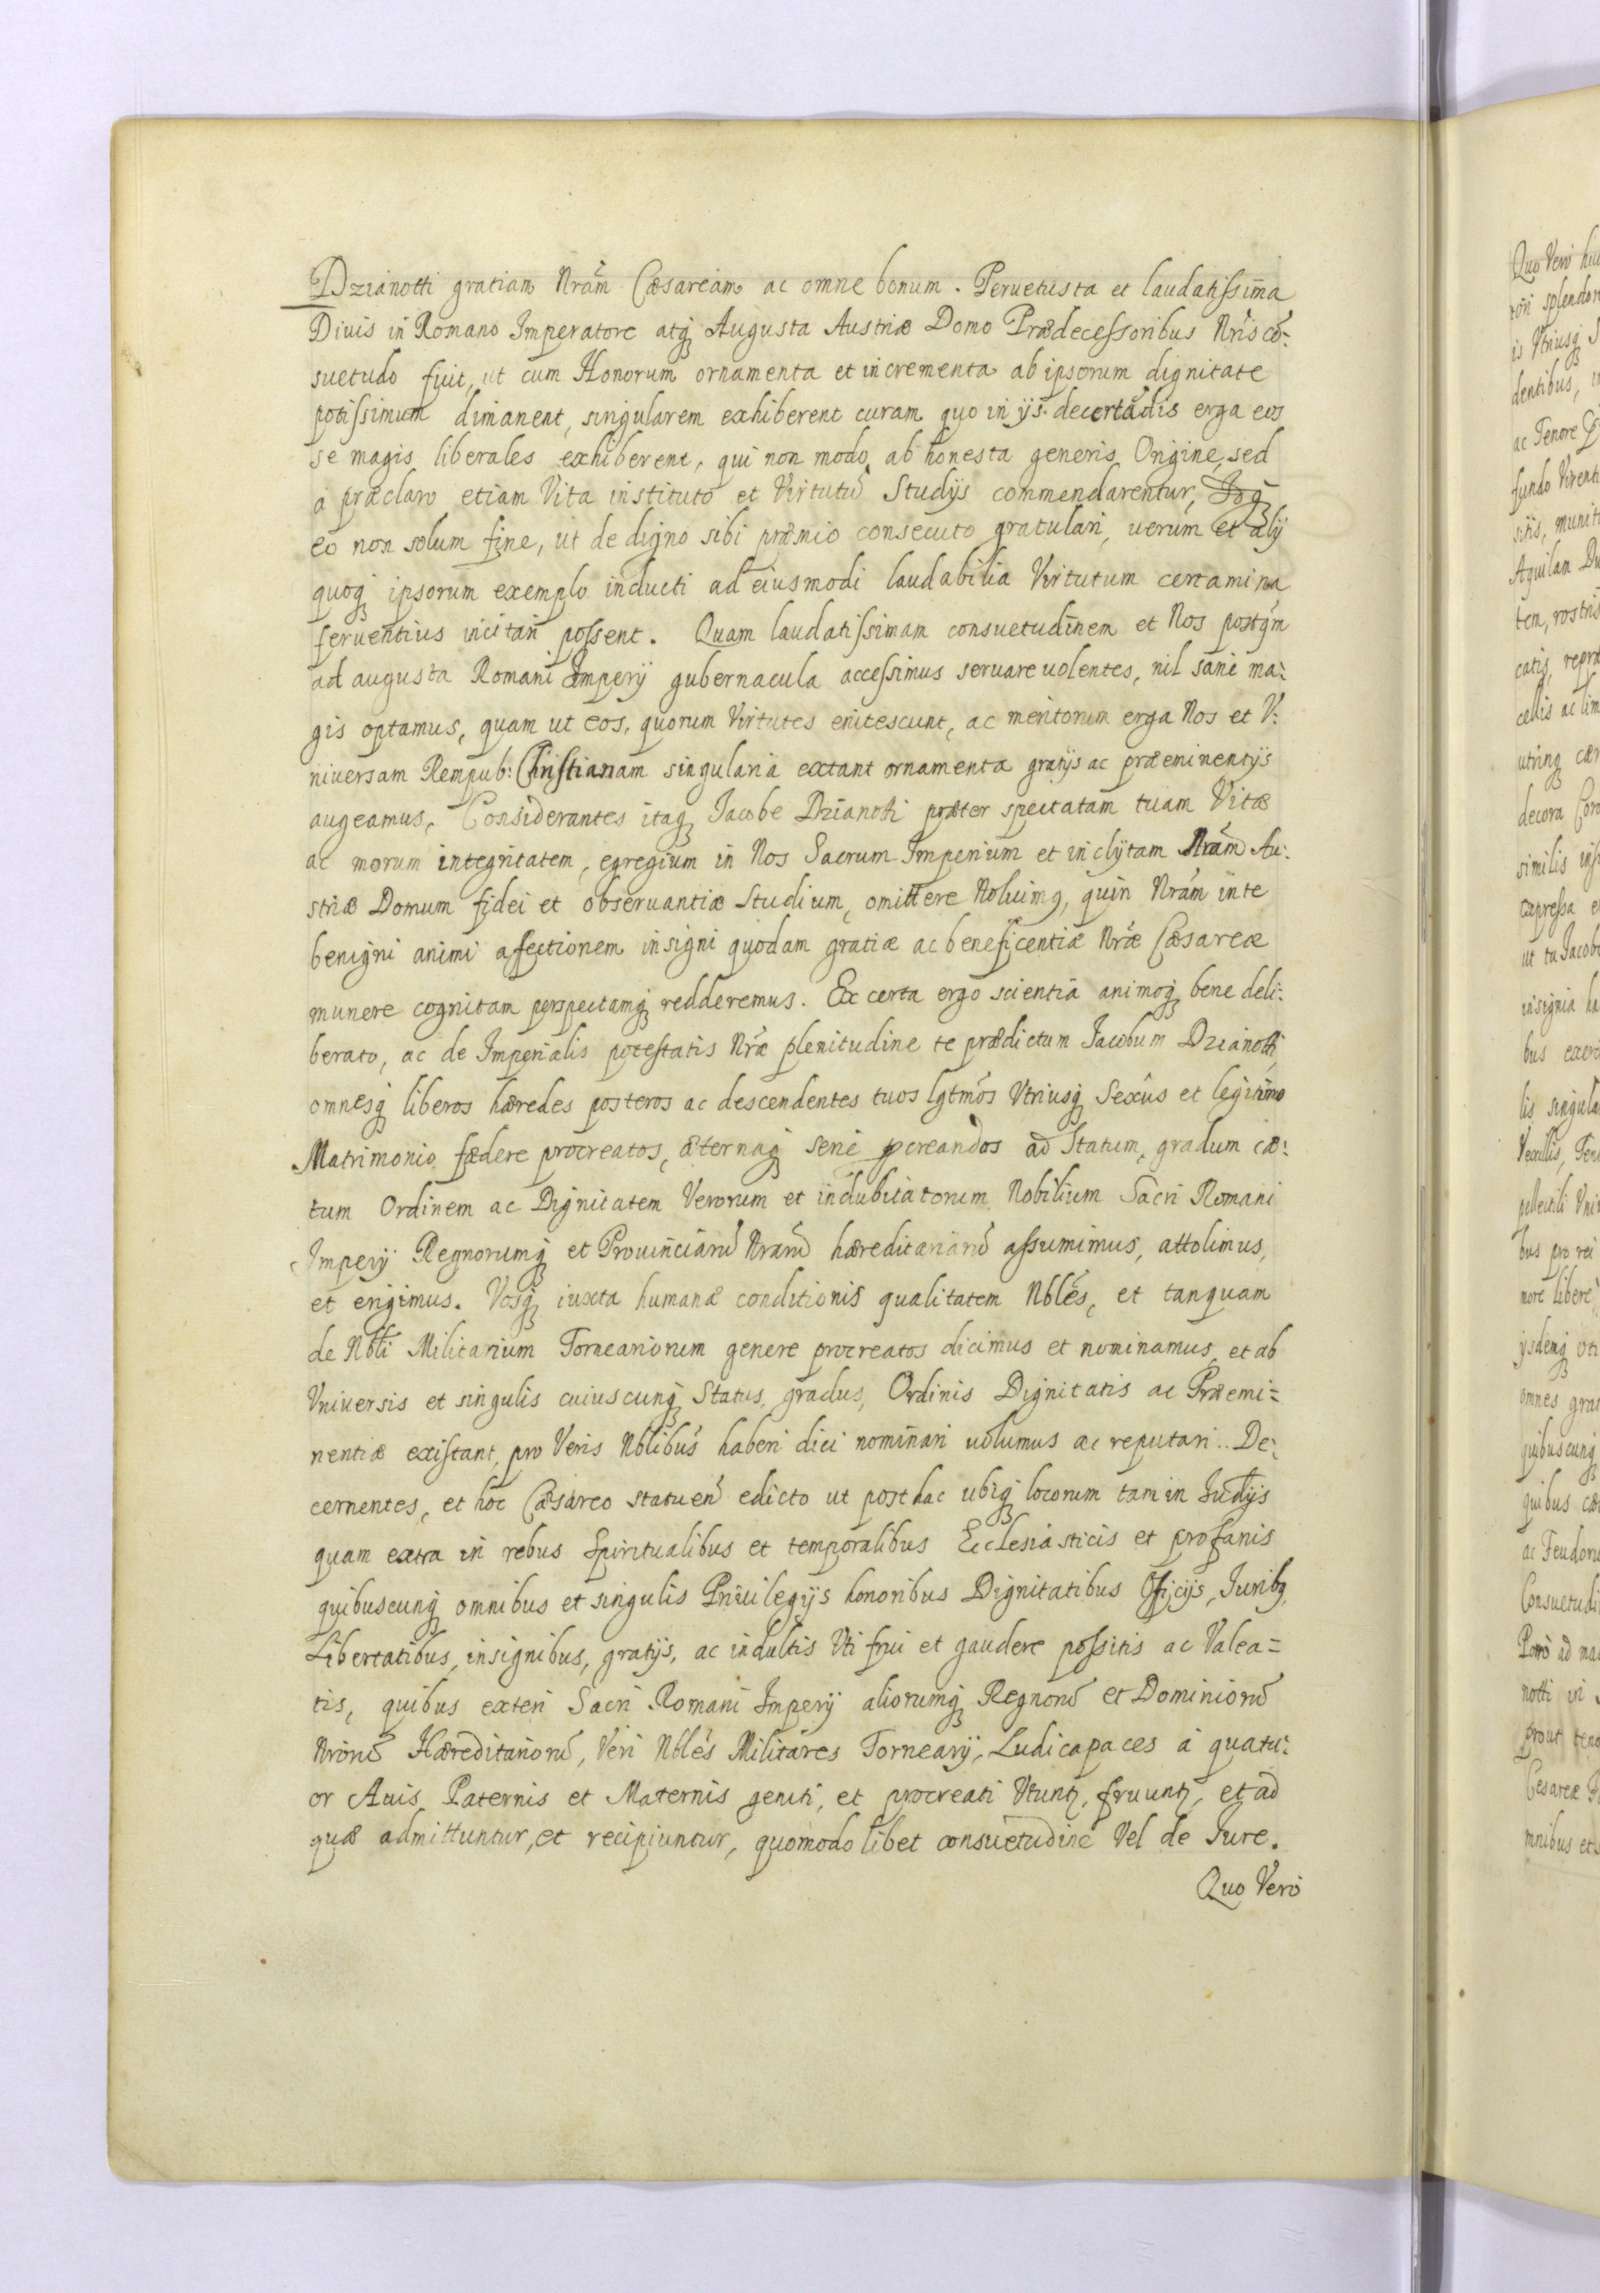 Dzianotti gratiam Nram̃ Cæsaream ac omne bonum. Peruetusta et laudatissima
Diuis in Romano Imperatore atq; Augusta Austriæ Domo Prædecessoribus Nris cõ:
suetudo fuit, ut cum Honorum ornamenta et incrementa ab ipsorum dignitate
potissimum dimanent, singularem exhiberent curam quo in ijs decertãdis erga eos
se magis liberales exhiberent, qui non modo ab honesta generis Origine, sed
a præclaro etiam Vita instituto et Virtutũ Studijs commendarentur,
eo non solum fine, ut de digno sibi præmio consecuto gratulari, uerum et alij
quoq; ipsorum exemplo inducti ad eiusmodi laudabilia Virtutum certamina
feruentius incitari possent. Quam laudatissimam consuetudinem et Nos postqm̃
ad augusta Romani Imperij gubernacula accessimus seruare uolentes, nil sane ma:
gis optamus, quam ut eos, quorum Virtutes enitescunt, ac meritorum erga Nos et V:
niuersam Rempub: Christianam singularia extant ornamenta gratijs ac præeminentijs
augeamus. Considerantes itaq; Jacobe Dzianotti præter spectatam tuam Vitæ
ac morum integritatem, egregium in Nos Sacrum Imperium et inclytam Nram̃ Au:
striæ Domum fidei et obseruantiæ Studium, omittere Noluimq, quin Nram̃ in te
benigni animi affectionem insigni quodam gratiæ ac beneficentiæ Nræ Cæsareæ
munere cognitam perspectamq; redderemus. Ex certa ergo scientia animoq; bene deli:
berato, ac de Imperialis potestatis Nræ plenitudine te prædictum Jacobum Dzianotti
omnesq; liberos hæredes posteros ac descendentes tuos lgtmõs Vtriusq; Sexus et legitimo
Matrimonio fædere procreatos, æternaq; serie pcreandos ad Statum, gradum cæ:
tum Ordinem ac Dignitatem Verorum et indubitatorum Nobilium Sacri Romani
Imperij Regnorumq; et Prouinciarũ Nrarũ hæreditariarũ assumimus, attolimus,
et erigimus. Vosq; iuxta humanæ conditionis qualitatem Nblẽs, et tanquam
de Nbli Militarium Torneariorum genere procreatos dicimus et nominamus, et ab
Vniuersis et singulis cuiuscunq; Status, gradus, Ordinis Dignitatis ac Præemi=
nentiæ existant, pro Veris Nblibus haberi dici nominari uolumus ac reputari.. De:
cernentes, et hoc Cæsareo statuen̄ edicto ut posthac ubiq; locorum tam in Iudijs
quam extra in rebus Spiritualibus et temporalibus Ecclesiasticis et profanis
quibuscunq; omnibus et singulis Priuilegijs honoribus Dignitatibus Officijs, Iuribq,
Libertatibus, insignibus, gratijs, ac indultis Vti frui et gaudere possitis ac Valea=
tis, quibus exteri Sacri Romani Imperij aliorumq; Regnorũ et Dominiorũ
Nrorũ Hæreditariorũ, Veri Nblẽs Militares Tornearij, Ludicapaces a quatu:
or Auis Paternis et Maternis geniti, et procreati Vtunt̃, fruunt̃, et ad
quæ admittuntur, et recipiuntur, quomodo libet consuetudine Vel de Jure.
Quo Vero